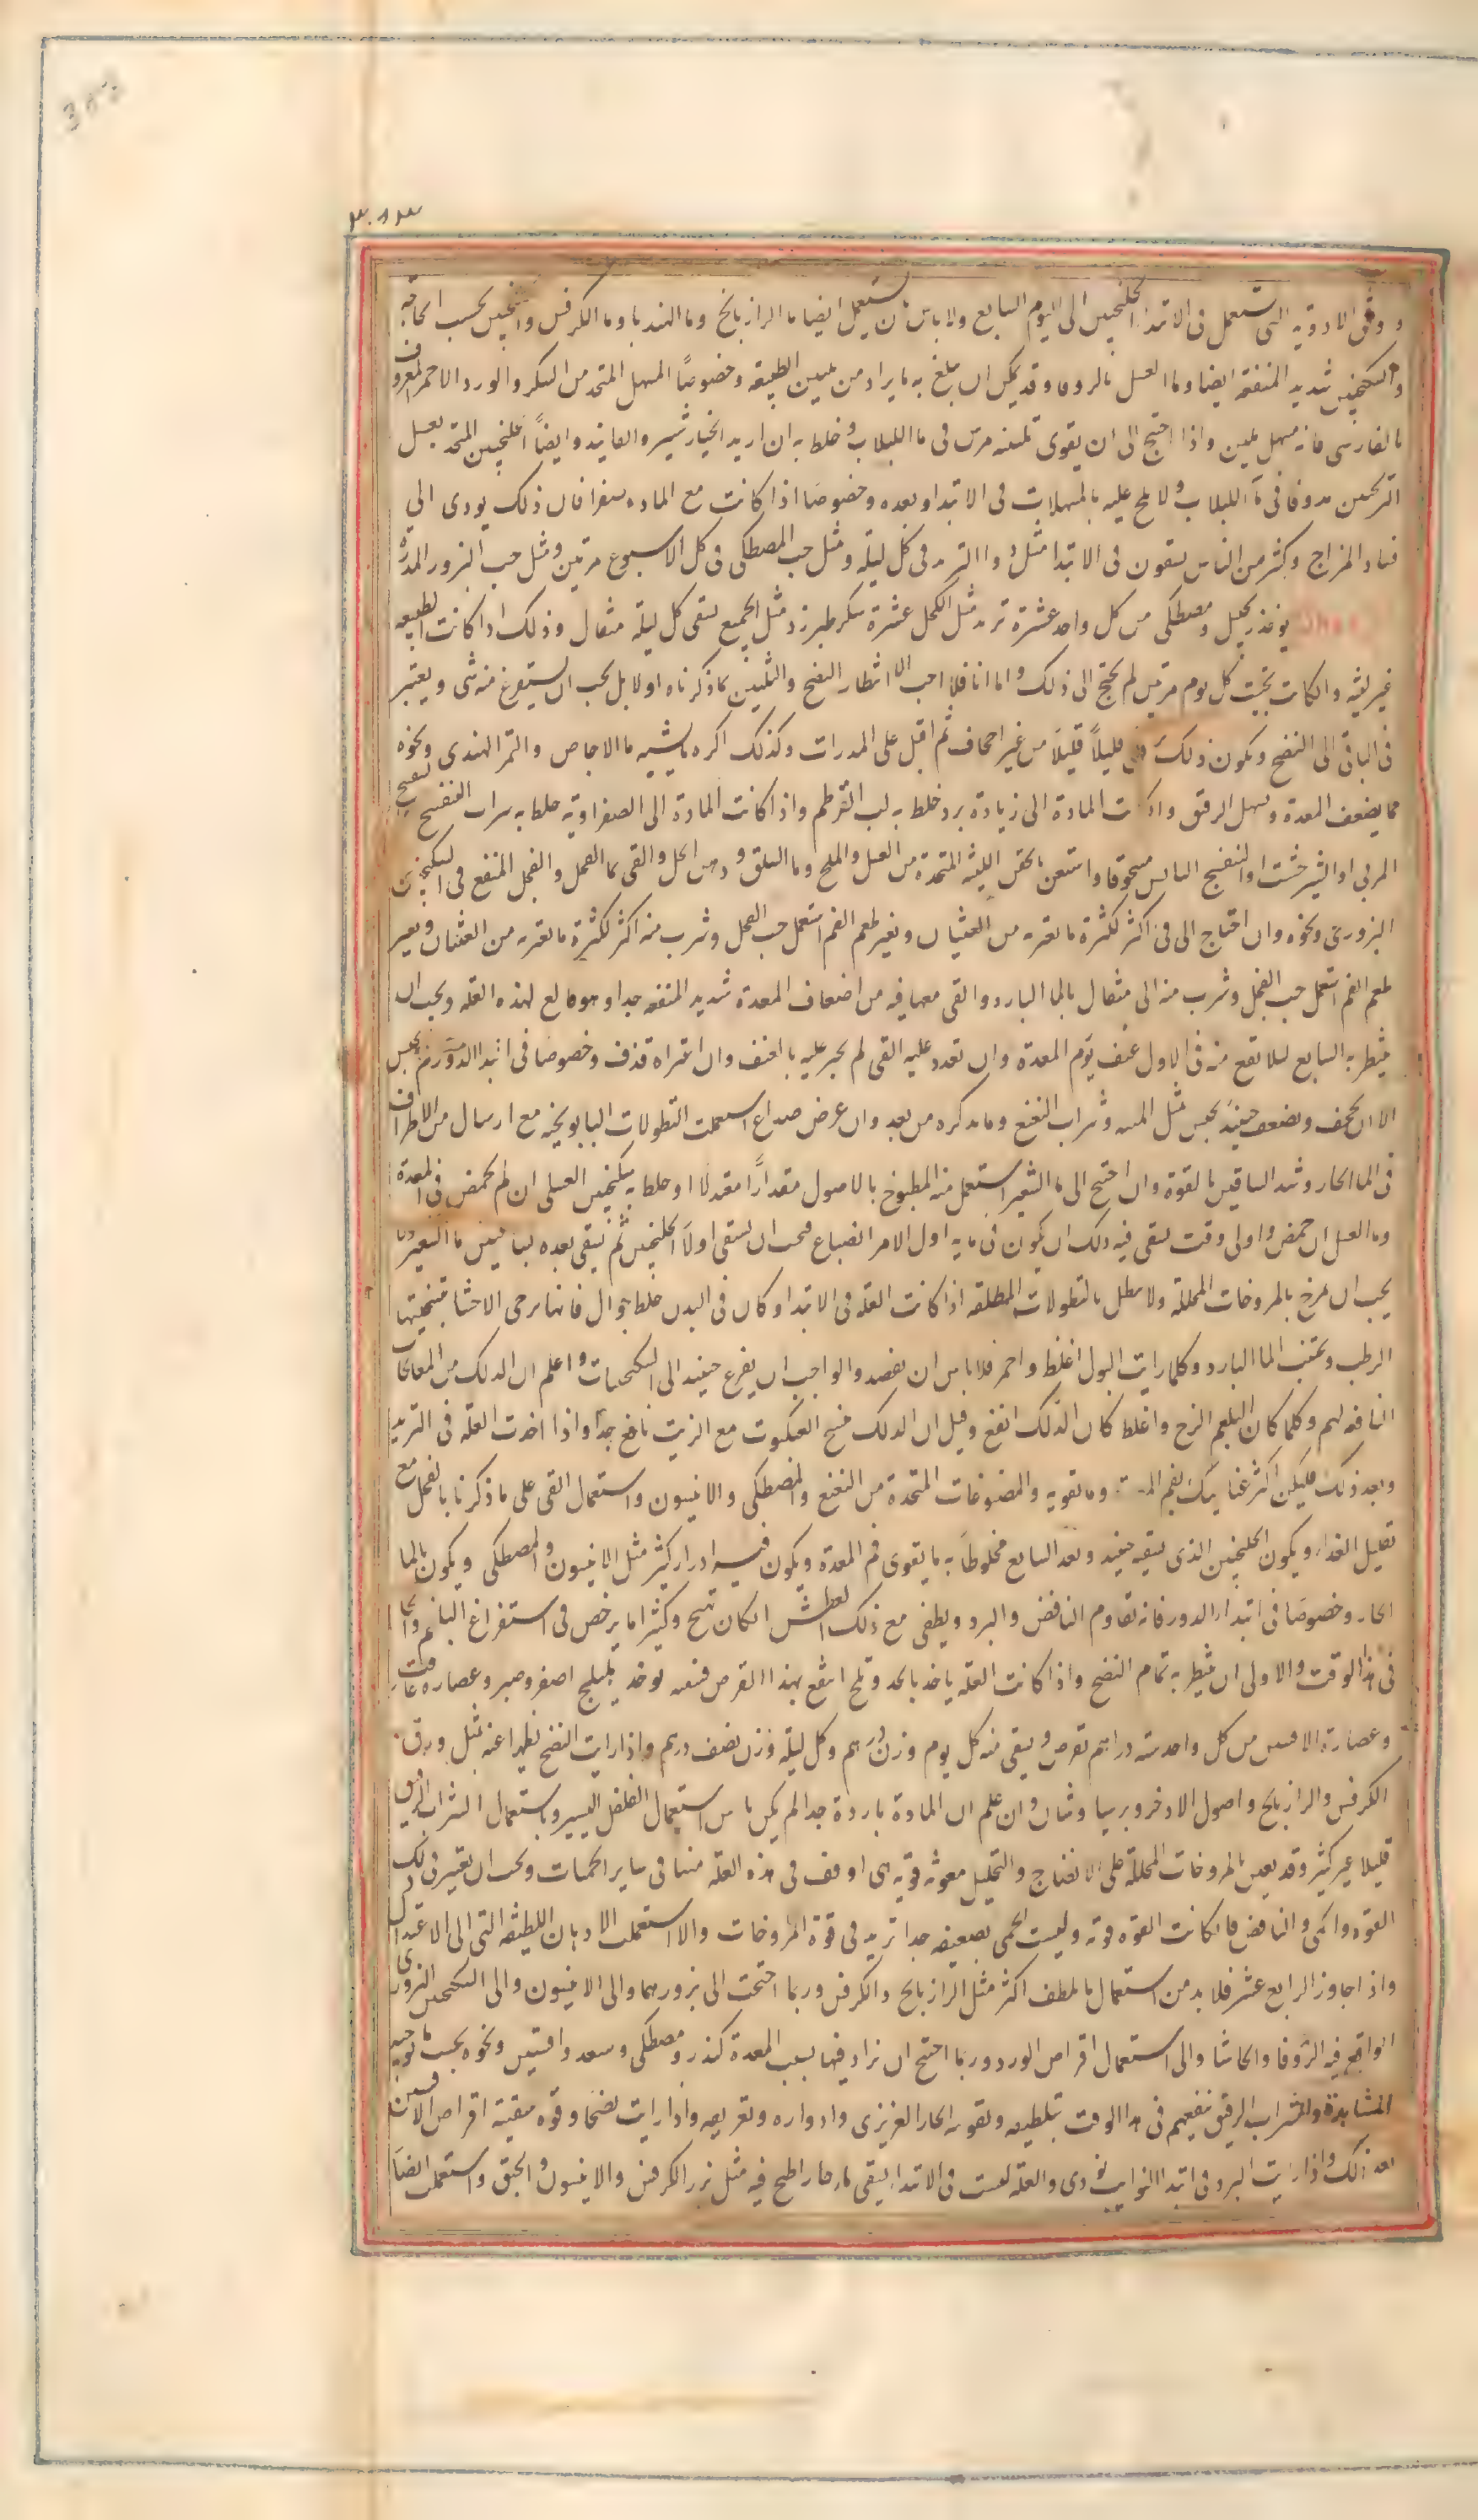 و وفق الادوية التى تستعمل فى الابتدا الجلنجبين الى اليوم السابع ولا باس بان يستعمل ايضا ما الرازيانج وما الهندبا وما الكرفس والجلنجبين بحسب الحاجة
والسكنجبين شديد المنفعة ايضا وما العسل بالزوفا وقد يمكن ان يبلغ به ما يراد من تليين الطبيعة وخصوصاً المسهل المتخذ من السكر والورد الاحمر المعروف
بالفارسى فانه مسهل ملين واذا احتيج الى ان يقوى تليينه مرس فى ما اللبلاب وخلط به ان اريد الخيارشنبر والفانيذ وايضاً الجلنجبين المتخذ بعسل
الترنجبين مدوفا فى ما اللبلاب ولا يلح عليه بالمسهلات فى الابتدا وبعده وخصوصا اذا كانت مع المادة صفرا فان ذلك يودى الى
فساد المزاج وكثير من الناس يسقون فى الابتدا مثل دوا التربد فى كل ليلة ومثل حب المصطكى فى كل الاسبوع مرتين ومثل حب البزور المدرة
يوخذ زنجبيل ومصطكى من كل واحد عشرة تربد مثل الكل عشرة سكر طبرزد مثل الجميع يسقى كل ليلة مثقال وذلك اذا كانت الطبيعة
غير لينة وان كانت تجيب كل يوم مرتين لم يحتج الى ذلك واما انا فلا احب الا انتظار النضج والتليين بما ذكرناه اولا بل يجب ان يستفرغ منه شى ويعتبر
فى الباقى الى النضج ويكون ذلك قليلاً قليلاً من غير اجحاف ثم اقبل على المدرات وكذلك اكره ما يشبه ما الاجاص والتمر الهندى ونحوه
مما يضعف المعدة ويسهل الرقيق واذا كانت المادة الى زيادة برد خلط به لب القرطم واذا كانت المادة الى الصفراوية خلط به شراب البنفسج
المربى او الشيرخشت او البنفسج اليابس مسحوقا واستعن بالحقن اللينة المتخذة من العسل والملح وما السلق ودهن الخل والقى بما الفجل والفجل المنقع فى السكنجبين
البزورى ونحوه وان احتاج الى قى اكثر لكثرة ما يعتريه من الغثيان وتغير طعم الفم استعمل حب الفجل وشرب منه اكثر لكثرة ما يعتريه من الغثيان وتغير
طعم الفم استعمل حب الفجل وشرب منه الى مثقال بالما البارد والقى معما فيه من اضعاف المعدة شديد المنفعة جدا وهو قالع لهذه العلة ويجب ان
ينتظر به السابع ليلا يقع منه فى الاول عنف يورم المعدة وان تعذر عليه القى لم يجبر عليه بالعنف وان اعتراه قذف وخصوصا فى ابتدا الدور لم يحبس
الا ان يجحف ويضعف حينئذ يحبس بمثل الميبه وشراب النعنع وما يذكره من بعد وان عرض صداع استعملت النطولات البابونجية مع ارسال من الاطراف
فى الما الحار وشد الساقين بالقوة وان احتيج الى ما الشعير استعمل منه المطبوخ بالاصول مقداراً معتدلا او خلط به سكنجبين العسلى ان لم يحمض فى المعدة
وما العسل ان حمض واولى وقت يسقى فيه ذلك ان يكون فى مايه اول الامر انصباغ فيجب ان يسقى اولاً الجلنجبين ثم يسقى بعده بساعتين ما الشعير
يجب ان يمرخ بالمروخات المحللة ولا ينطل بالنطولات المطلقة اذا كانت العلة فى الابتدا وكان فى البدن خلط جوال فانها ترخى الاحشا بتسخينها
الرطب ويجتنب الما البارد وكلما رايت البول اغلظ واحمر فلا باس ان يفصد والواجب ان يفزع حينئذ الى السكنجبينات واعلم ان الدلك من المعالجات
النافعة لهم وكلما كان البلغم الزج واغلظ كان الدلك انفع وقيل ان الدلك بنسج العنكبوت مع الزيت نافع جداً واذا اخذت العلة فى التزيد
وبعد ذلك فليكن اكثر عنايتك بفم المعدة وما تقويه والمضوغات المتخذة من النعنع والمصطكى والانيسون واستعمال القى على ما ذكرنا بالفجل مع
تقليل الغذا ويكون الجلنجبين الذى يسقيه حينئذ وبعد السابع مخلوطاً به ما يقوى فم المعدة ويكون فيه ادرار كثير مثل الانيسون والمصطكى ويكون بالما
الحار وخصوصا فى ابتدا الدور فانه يقاوم النافض والبرد ويطفى مع ذلك العطش ان كان تهيج وكثيرا ما يرخص فى استفراغ البلغم
فى هذا الوقت والاولى ان ينتظر به تمام النضج واذا كانت العلة ياخذ بالجد وتلح انتفع بهذا القرص وصنعته يوخذ هليلج اصفر وصبر وعصارة غافت
وعصارة الافسنتين من كل واحد ستة دراهم يقرص ويسقى منه كل يوم وزن درهم وكل ليلة وزن نصف درهم واذا رايت النضج ظهرا عنه بمثل ورق
الكرفس والرازيانج واصول الاذخر وبرسياوشان وان علم ان المادة باردة جدا لم يكن باس باستعمال الفلفل اليسير وباستعمال الشراب الرقيق
قليلا غير كثير وقد يعين بالمروخات المحللة على الانضاج والتحليل معونة قوية هى اوفق فى هذه العلة منها فى ساير الحميات ويجب ان يعتبر فى ذلك
القوة والحمى والنافض فان كانت القوة قوية وليست الحمى بصعيفه جدا تزيد فى قوة المروخات والا استعملت الادهان اللطيفة التى الى الاعتدال
واذا جاوز الرابع عشر فلا بد من استعمال ما يلطف اكثر مثل الرازيانج والكرفس وربما احتجت الى بزورهما والى الانيسون والى السكنجبين البزورى
الواقع فيه الزوفا والحاشا والى استعمال اقراص الورد وربما احتيج ان يزاد فيها بسبب المعدة كندر ومصطكى وسعد وافسنتين ونحوه بحسب ما توجبه
المشاهدة والشراب الرقيق ينفعهم فى هذا الوقت بتلطيفه وتقوية الحار الغريزى وادراره وتعريقه واذا رايت نضجا وقوة فسقيه اقراص الافسنتين
بعد ذلك واذا رايت البرد فى ابتدا النوايب يوذى والعلة ليست فى الابتدا يسقى ما حار اطبخ فيه مثل بزر الكرفس والانيسون والحبق واستعملت ايضاً